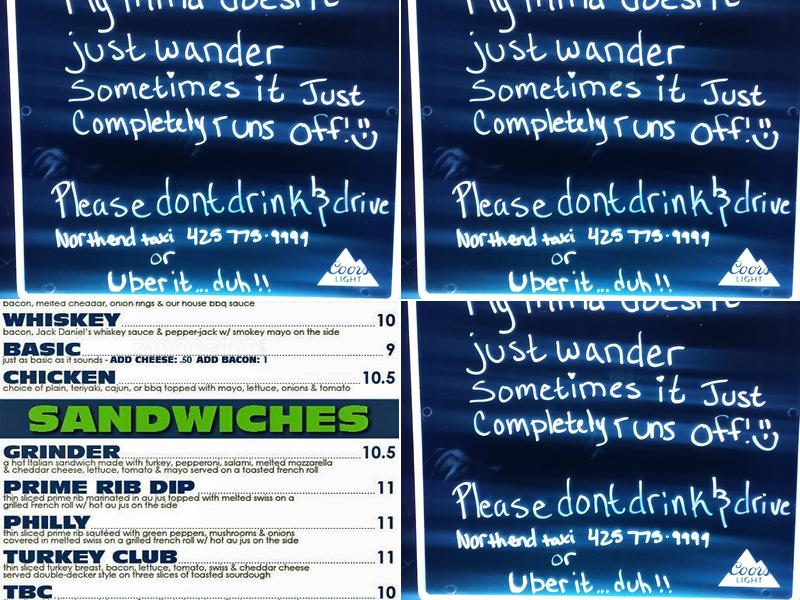 My mind doesn't
just wander
Sometimes it Just
Completely runs Off!
Please dont drink & drive
Northend taxi 425 775-9999
or
Uber it...duh!!
Coors
LIGHT
My mind doesn't
just wander
Sometimes it Just
Completely runs Off!
Please dont drink & drive
Northend taxi 425 775-9999
or
Uber it...duh!!
Coors
LIGHT
bacon, melted cheddar, onion rings & our house bbq sauce
WHISKEY 10
bacon, Jack Daniel's whiskey sauce & pepper-jack w/ smokey mayo on the side
BASIC 9
just as basic as it sounds - ADD CHEESE: .50 ADD BACON: 1
CHICKEN 10.5
choice of plain, teriyaki, cajun, or bbq topped with mayo, lettuce, onions & tomato
SANDWICHES
GRINDER 10.5
a hot Italian sandwich made with turkey, pepperoni, salami, melted mozzarella
& cheddar cheese, lettuce, tomato & mayo served on a toasted french roll
PRIME RIB DIP 11
thin sliced prime rib marinated in au jus topped with melted swiss on a
grilled French roll w/ hot au jus on the side
PHILLY 11
thin sliced prime rib sautéed with green peppers, mushrooms & onions
covered in melted swiss on a grilled french roll w/ hot au jus on the side
TURKEY CLUB 11
thin sliced turkey breast, bacon, lettuce, tomato, swiss & cheddar cheese
served double-decker style on three slices of toasted sourdough
TBC 10
My mind doesn't
just wander
Sometimes it Just
Completely runs Off!
Please dont drink & drive
Northend taxi 425 775-9999
or
Uber it...duh!!
Coors
LIGHT